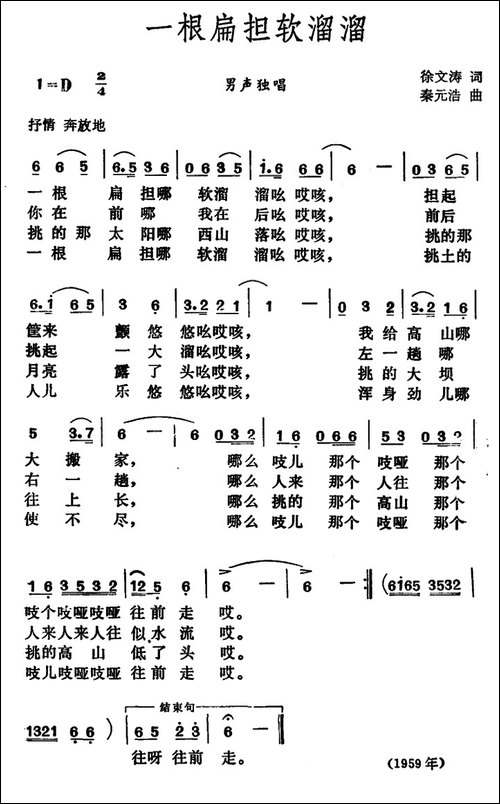 一根扁担软溜溜
1=D 2/4 男声独唱 徐文涛 词
秦元浩 曲
抒情 奔放地
6 6 5 | 6.5 3 6 | 0 6 3 5 | 1.6 6 6 | 6 - | 0 6 3 6 5 |
一根 扁担哪 软溜 溜吆哎咳, 担起
你在 前哪 我在 后吆哎咳, 前后
挑的那 太阳哪 西山 落吆哎咳, 挑的那
一根 扁担哪 软溜 溜吆哎咳, 挑土的
6.1 6 5 | 3 6 | 3.2 2 1 | 1 - | 0 3 2 | 3.2 1 6 |
筐来 颤悠 悠吆哎咳, 我给高山哪
挑起 一大 溜吆哎咳, 左一趟哪
月亮 露了 头吆哎咳, 挑的大坝
人儿 乐悠 悠吆哎咳, 浑身劲儿哪
5 3.7 | 6 - | 6 0 3 2 | 1 6 0 6 6 | 5 3 0 3 2 |
大搬家, 哪么 吱儿 那个 吱哑 那个
右一趟, 哪么 人来 那个 人往 那个
往上长, 哪么 挑的 那个 高山 那个
使不尽, 哪么 吱儿 那个 吱哑 那个
1 6 3 5 3 2 | 1 2 5 6 | 6 - | 6 - :‖ (6165 3532 |
吱个吱哑吱哑 往前走 哎。
人来人来人往 似水流 哎。
挑的高山 低了头 哎。
吱儿吱哑吱哑 往前走 哎。
结束句
1321 6 6 ) | 6 5 2 3 | 6 - ‖
往呀往前 走。
(1959年)